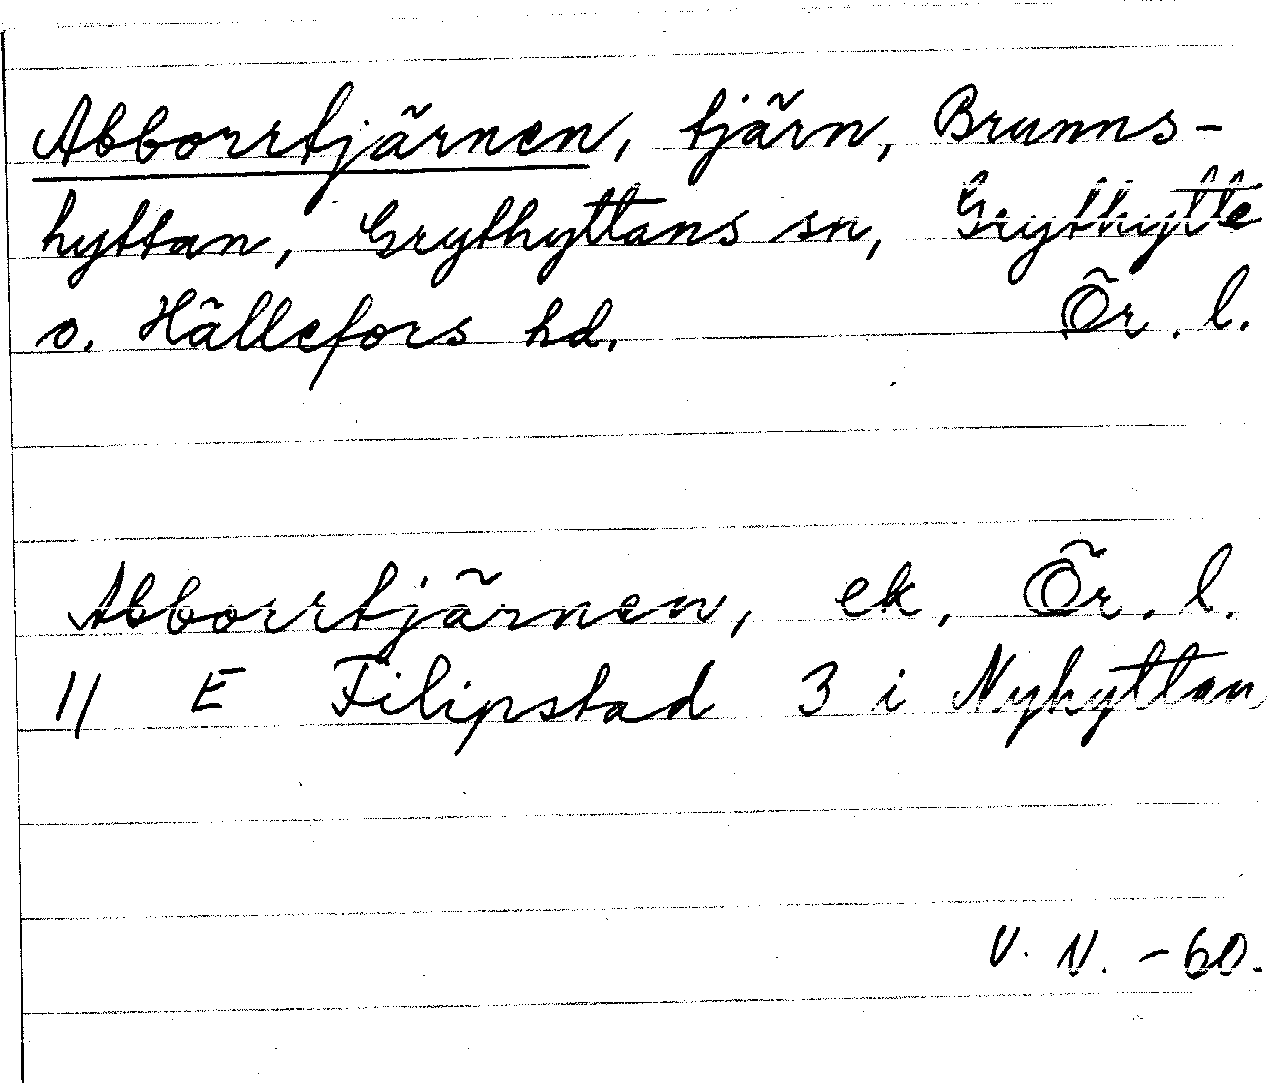 Abborrtjärnen, tjärn, Brunns-
hyttan, Grythyttans sn, Grythytte
o. Hällefors hd. Ör. l.
Abborrtjärnen, ek. Ör. l.
11 E Filipstad 3 i Nyhyttan
V. N. -60.